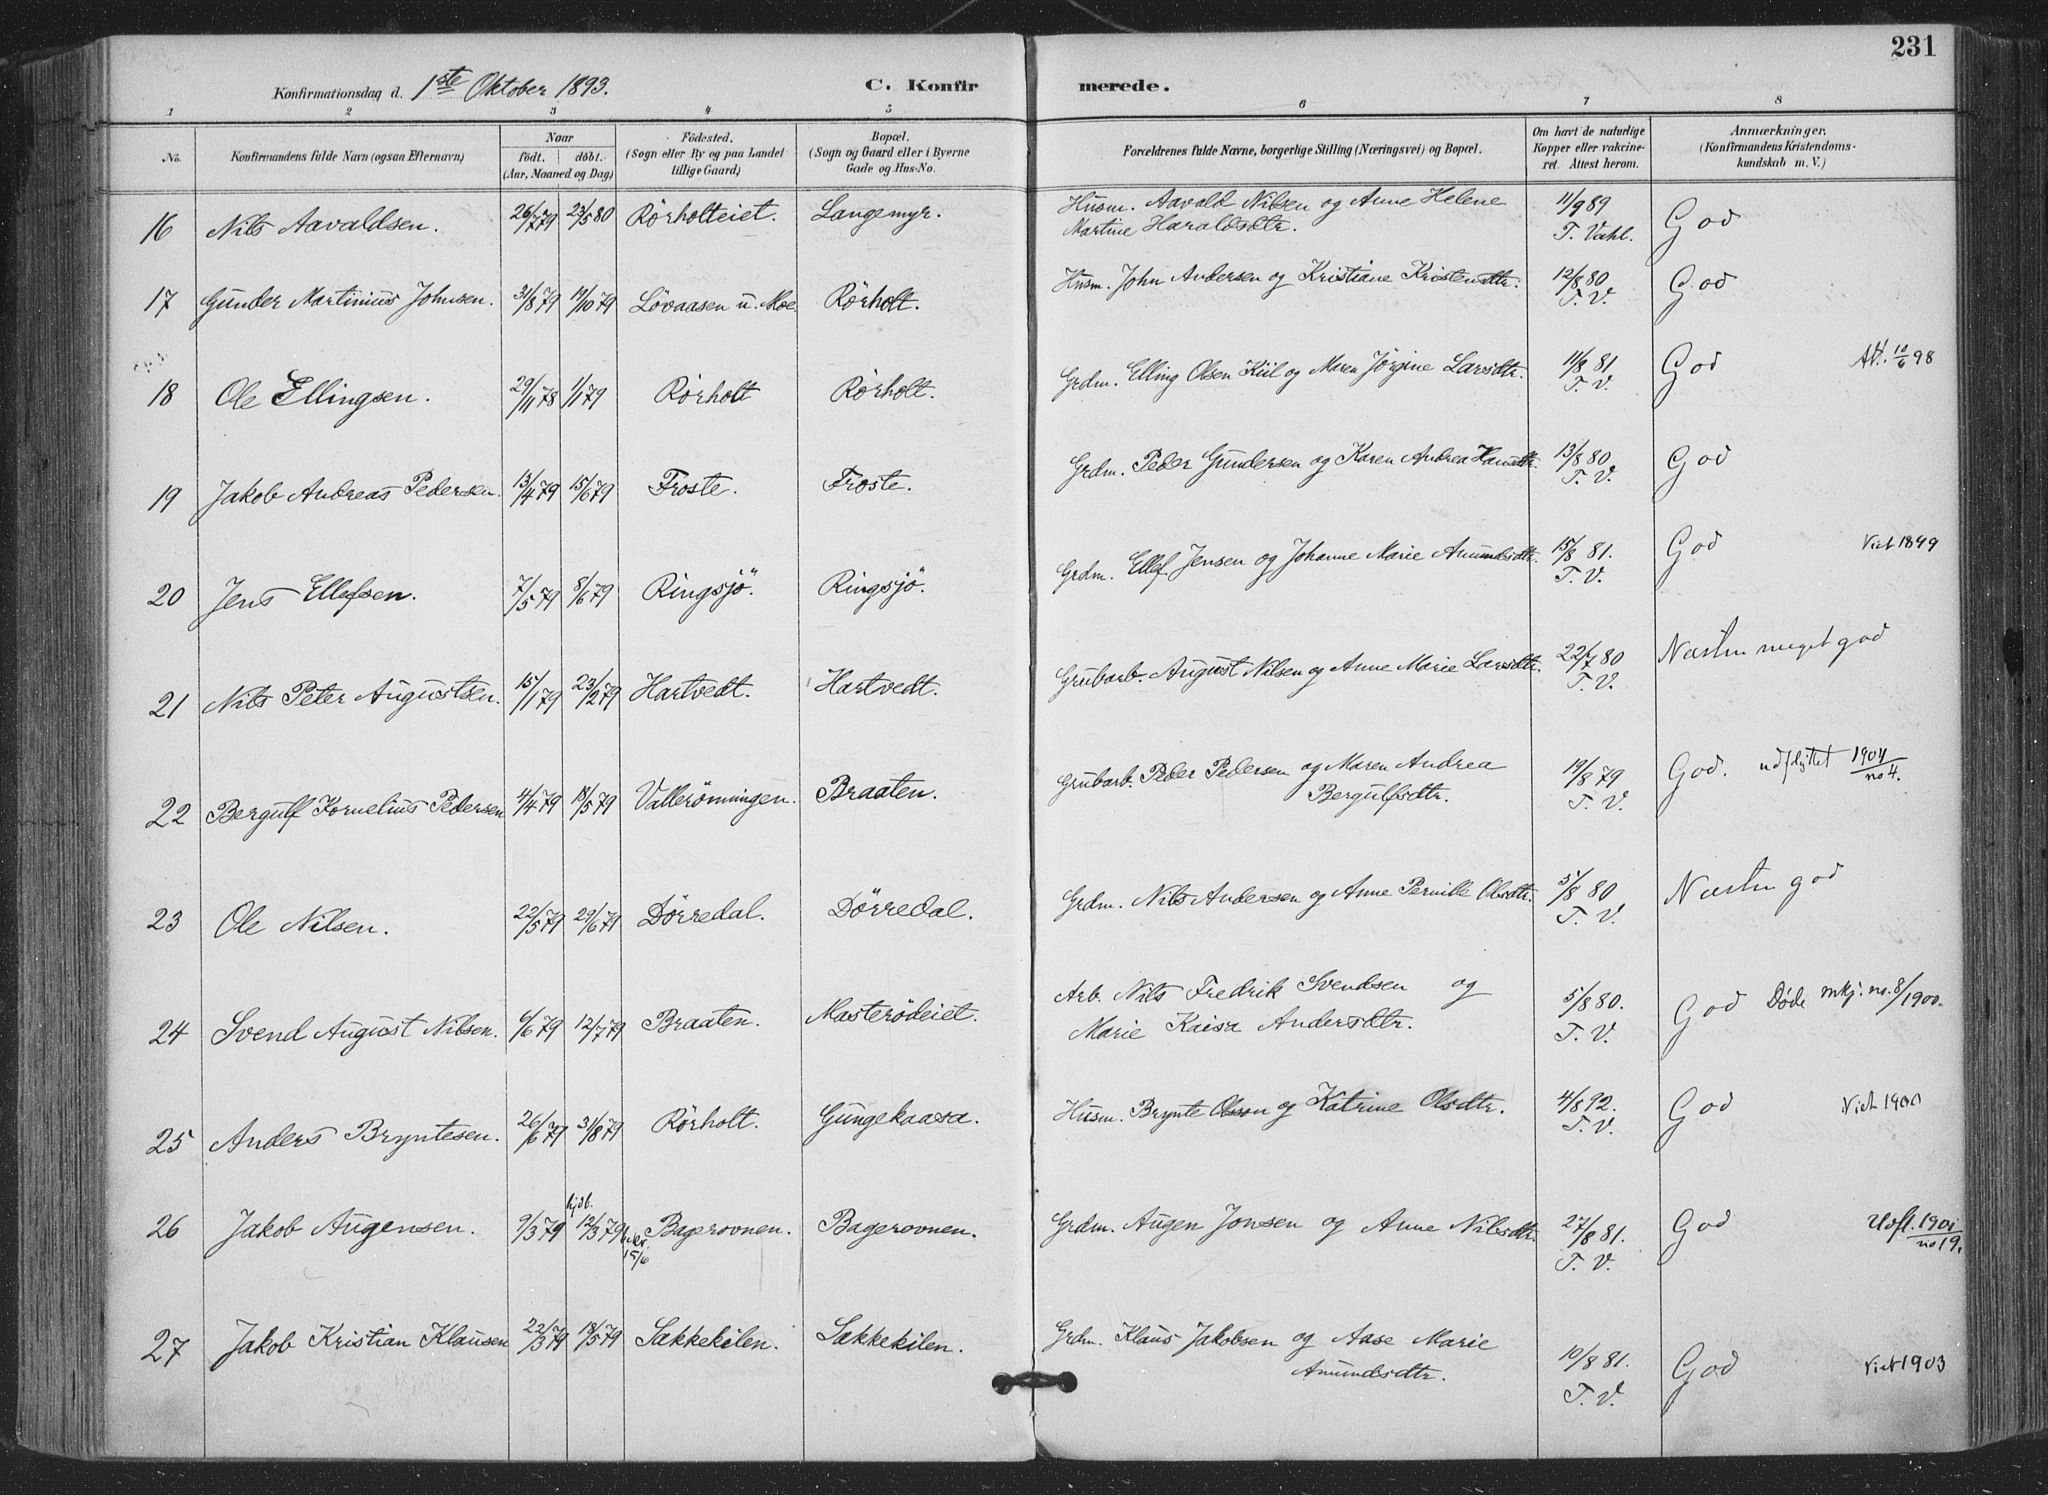 231
Konfirmationsdag d. 1ste Oktober 1893. C. Konfirmerede.
1 2 3 4 5 6 7 8
No. Konfirmandens fulde Navn (ogsaa Efternavn) Naar født. døbt. (Aar, Maaned og Dag) Fødested. (Sogn eller By og paa Landet tillige Gaard) Bopæl. (Sogn og Gaard eller i Byerne Gade og Hus-No. Forældrenes fulde Navne, borgerlige Stilling (Næringsvei) og Bopæl. Om havt de naturlige Kopper eller vakcineret. Attest herom. Anmærkninger. (Konfirmandens Kristendomskundskab m. V.)
16 Nils Aavaldsen. 26/7 79 23/5 80 Rörholteiet. Langemyr. Husm. Aavald Nilsen og Anne Helene Martine Haraldsdtr. 11/9 89 T. Vahl. God
17 Gunder Martinius Johnsen. 31/8 79 19/10 79 Lövaasen u. Moe Rörholt. Husm. John Andersen og Kristiane Kristensdtr. 12/8 80 T. V. God
18 Ole Ellingsen. 29/11 78 1/1 79 Rörholt Rörholt. Grdm. Elling Olsen Kiil og Maren Jörgine Larsdtr. 11/8 81 T. V. God Att. 10/6 98
19 Jakob Andreas Pedersen. 13/4 79 15/6 79 Froste. Froste. Grdm. Peder Gundersen og Karen Andrea Hansdtr. 13/8 80 T. V. God
20 Jens Ellefsen. 7/5 79 8/6 79 Ringsjö. Ringsjö. Grdm. Ellef Jensen og Johanne Marie Amundsdtr. 15/8 81. T. V. God Viet 1899
21 Nils Peter Augustsen. 15/1 79 23/2 79 Hartvedt. Hartvedt. Grubarb. August Nilsen og Anne Marie Larsdtr. 22/7 80 T. V. Næsten meget god
22 Bergulf Kornelius Pedersen 4/4 79 18/5 79 Vallerömningen. Braaten. Grubarb. Peder Pedersen og Maren Andrea Bergulfsdtr. 19/8 79 T. V. God. udflyttet 1904/no 4.
23 Ole Nilsen. 22/5 79 29/6 79 Dörredal. Dörredal. Grdm. Nils Andersen og Anne Pernille Olsdtr. 5/8 80 T. V. Næsten god
24 Svend August Nilsen. 6/6 79 12/7 79 Braaten. Masterödeiet. Arb. Nils Fredrik Svendsen og Marie Kaisa Andersdtr. 5/8 80. T. V. God Døde mkj. no. 8/1900.
25 Anders Bryntesen. 26/6 79 31/8 79 Rörholt. Gungekaasa. Husm. Brynte Olsson og Katrine Olsdtr. 4/8 92. T. V. God Viet 1900
26 Jakob Augensen. 9/3 79 hjdb. 12/3 79 15/6 Bagerovnen. Bagerovnen. Grdm. Augen Jonsen og Anne Nilsdtr. 27/8 81. T. V. God Udfl. 1901/no 19.
27 Jakob Kristian Klausen 22/3 79 18/5 79 Sakkekilen. Sakkekilen. Grdm. Klaus Jakobsen og Aase Marie Amundsdtr. 10/8 81. T. V. God Viet 1903